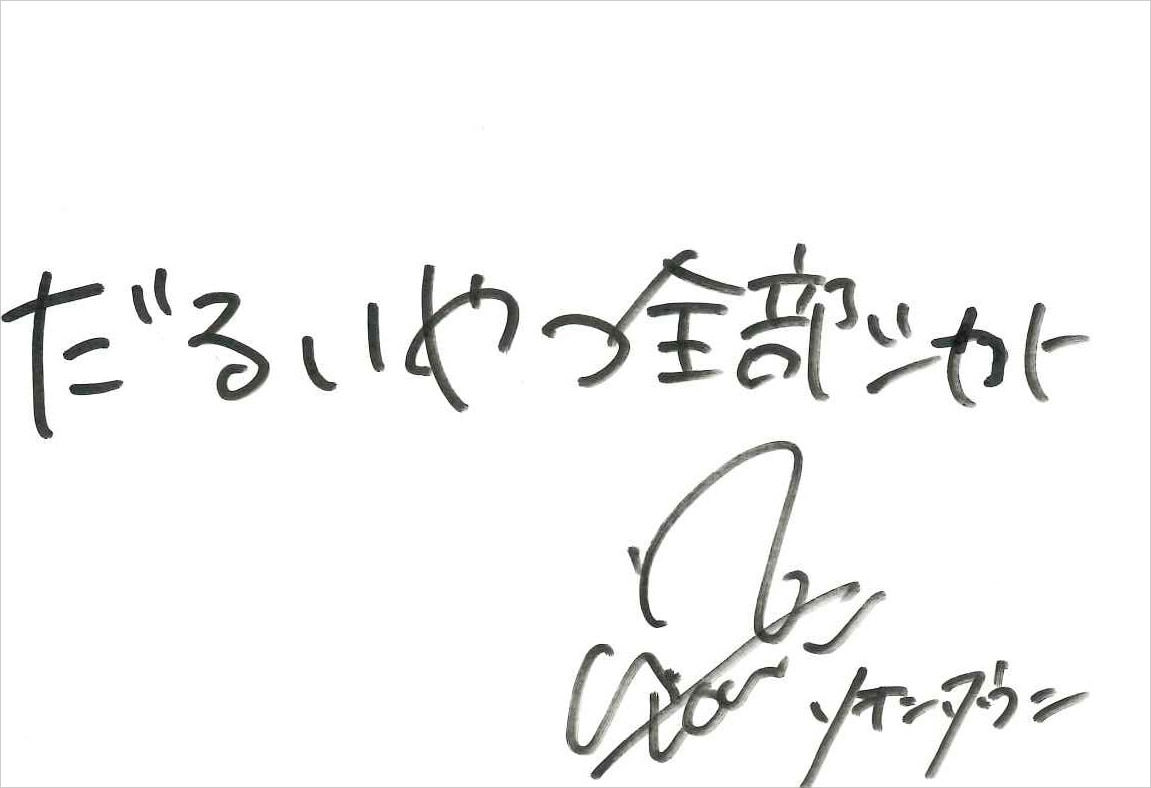 だるいやつ全部シカト
ソオンアウン